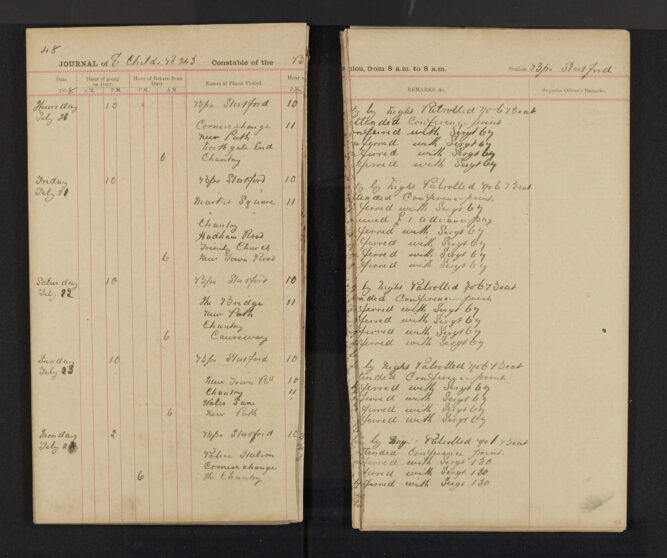 48
JOURNAL of E Childs PC 243 Constable of the B
Date. Hour of going on Duty. Hour of Return from Duty. Names of Places Visited. Hour
190 A.M. P.M. P.M. A.M. P.M.
Thursday 10 B/po Stortford 10
Feby 20
Cornexchange 11
New Path
Northgate End
6 Chantry
Friday 10 B/po Stortford 10
Feby 21
Market Square 11
"
Chantry
Hadham Road
Trinity Church
6 New Town Road
Saturday 10 B/po Stortford 10
Feby 22
The Bridge 11
New Path
Chantry
6 Causeway
Sunday 10 B/po Stortford 10
Feby 23
New Town Rd 10
Chantry 11
Wates Lane
6 New Path
Monday 2 B/po Stortford 10
Feby 24
Police Station
Cornexchange
6 The Chantry
ision, from 8 a.m. to 8 a.m. Station B/po Stortford
REMARKS &c. Superior Officer's Remarks.
ty by Night Patrolled No 6 Beat
ttended Conference point
nferred with Sergt 64
nferred with Sergt 64
ferred with Sergt 64
ferred with Sergt 64
ty by Night Patrolled No 6 Beat
tended Conference point
ferred with Sergt 64
£1 advance pay
ferred with Sergt 64
ferred with Sergt 64
ferred with Sergt 64
ferred with Sergt 64
by Night Patrolled No 6 Beat
ended Conference point
ferred with Sergt 64
ferred with Sergt 64
ferred with Sergt 64
ferred with Sergt 64
by Night Patrolled No 6 Beat
tended Conference point
ferred with Sergt 64
ferred with Sergt 64
ferred with Sergt 64
ferred with Sergt 64
by Day Patrolled No 1 Beat
ttended Conference point
ferred with Sergt 130
ferred with Sergt 130
ferred with Sergt 130